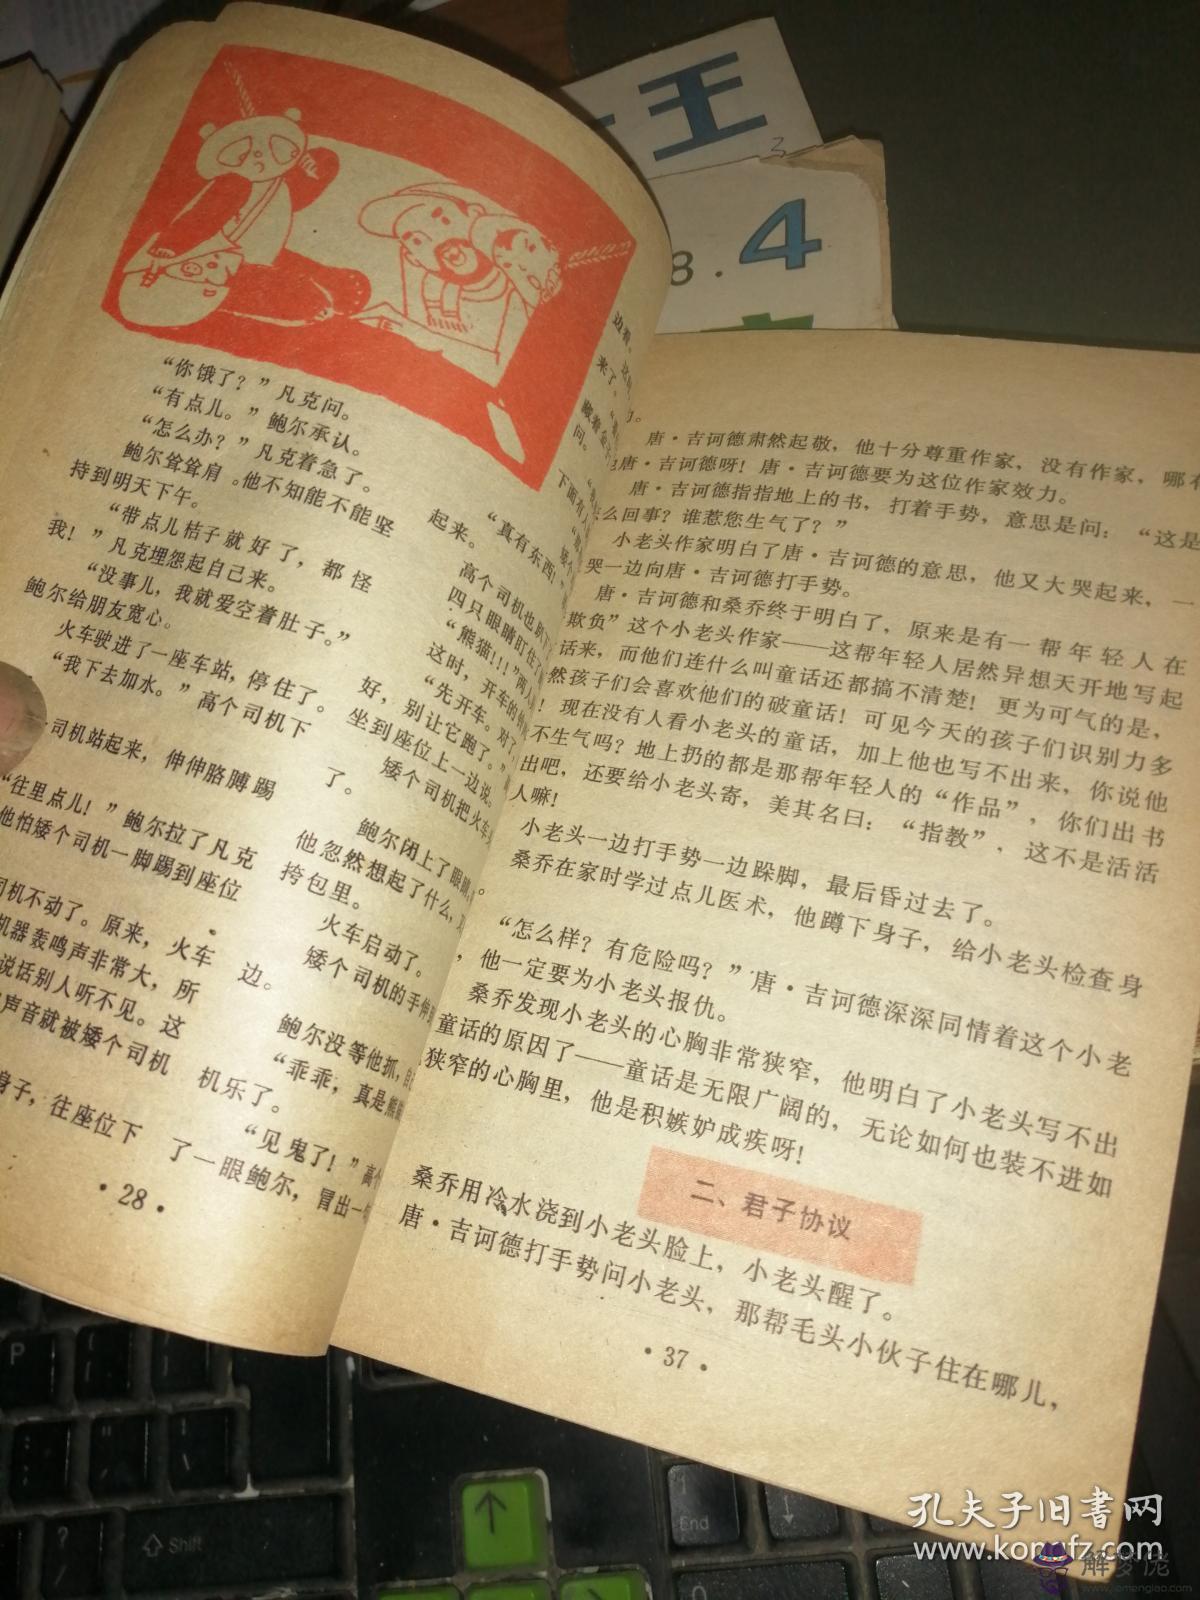 王
3
8.4
“你饿了？”凡克问。
“有点儿。”鲍尔承认。
“怎么办？”凡克着急了。
鲍尔耸耸肩。他不知能不能坚
持到明天下午。
“带点儿桔子就好了，都怪
我！”凡克埋怨起自己来。
“没事儿，我就爱空着肚子。”
鲍尔给朋友宽心。
火车驶进了一座车站，停住了。
“我下去加水。”高个司机下
司机站起来，伸伸胳膊踢
“往里点儿！”鲍尔拉了凡克
他怕矮个司机一脚踢到座位
司机不动了。原来，火车
机器轰鸣声非常大，所
说话别人听不见。这
声音就被矮个司机
身子，往座位下
·28·
边看。
来了。
问。
下面有人
“真有东西！
起来。
高个司机也趴下
四只眼睛盯住了
“熊猫！！！”两人
这时，开车的
“先开车。对了
好，别让它跑了。”
坐到座位上一边说。
矮个司机把火车
了。
鲍尔闭上了眼睛，
他忽然想起了什么，
挎包里。
火车启动了。
矮个司机的手伸
边。
鲍尔没等他抓，自
“乖乖，真是熊
机乐了。
“见鬼了！”高个
了一眼鲍尔，冒出一
唐·吉诃德肃然起敬，他十分尊重作家，没有作家，哪有
唐·吉诃德呀！唐·吉诃德要为这位作家效力。
唐·吉诃德指指地上的书，打着手势，意思是问：“这是
么回事？谁惹您生气了？”
小老头作家明白了唐·吉诃德的意思，他又大哭起来，一
哭一边向唐·吉诃德打手势。
唐·吉诃德和桑乔终于明白了，原来是有一帮年轻人在
欺负”这个小老头作家——这帮年轻人居然异想天开地写起
话来，而他们连什么叫童话还都搞不清楚！更为可气的是，
然孩子们会喜欢他们的破童话！可见今天的孩子们识别力多
！现在没有人看小老头的童话，加上他也写不出来，你说他
不生气吗？地上扔的都是那帮年轻人的“作品”，你们出书
出吧，还要给小老头寄，美其名曰：“指教”，这不是活活
人嘛！
小老头一边打手势一边跺脚，最后昏过去了。
桑乔在家时学过点儿医术，他蹲下身子，给小老头检查身
“怎么样？有危险吗？”唐·吉诃德深深同情着这个小老
，他一定要为小老头报仇。
桑乔发现小老头的心胸非常狭窄，他明白了小老头写不出
童话的原因了——童话是无限广阔的，无论如何也装不进如
狭窄的心胸里，他是积嫉妒成疾呀！
二、君子协议
桑乔用冷水浇到小老头脸上，小老头醒了。
唐·吉诃德打手势问小老头，那帮毛头小伙子住在哪儿，
·37·
P
?
Shift
End
孔夫子旧书网
www.kongfz.com
解梦佬
www.jiemenglao.com